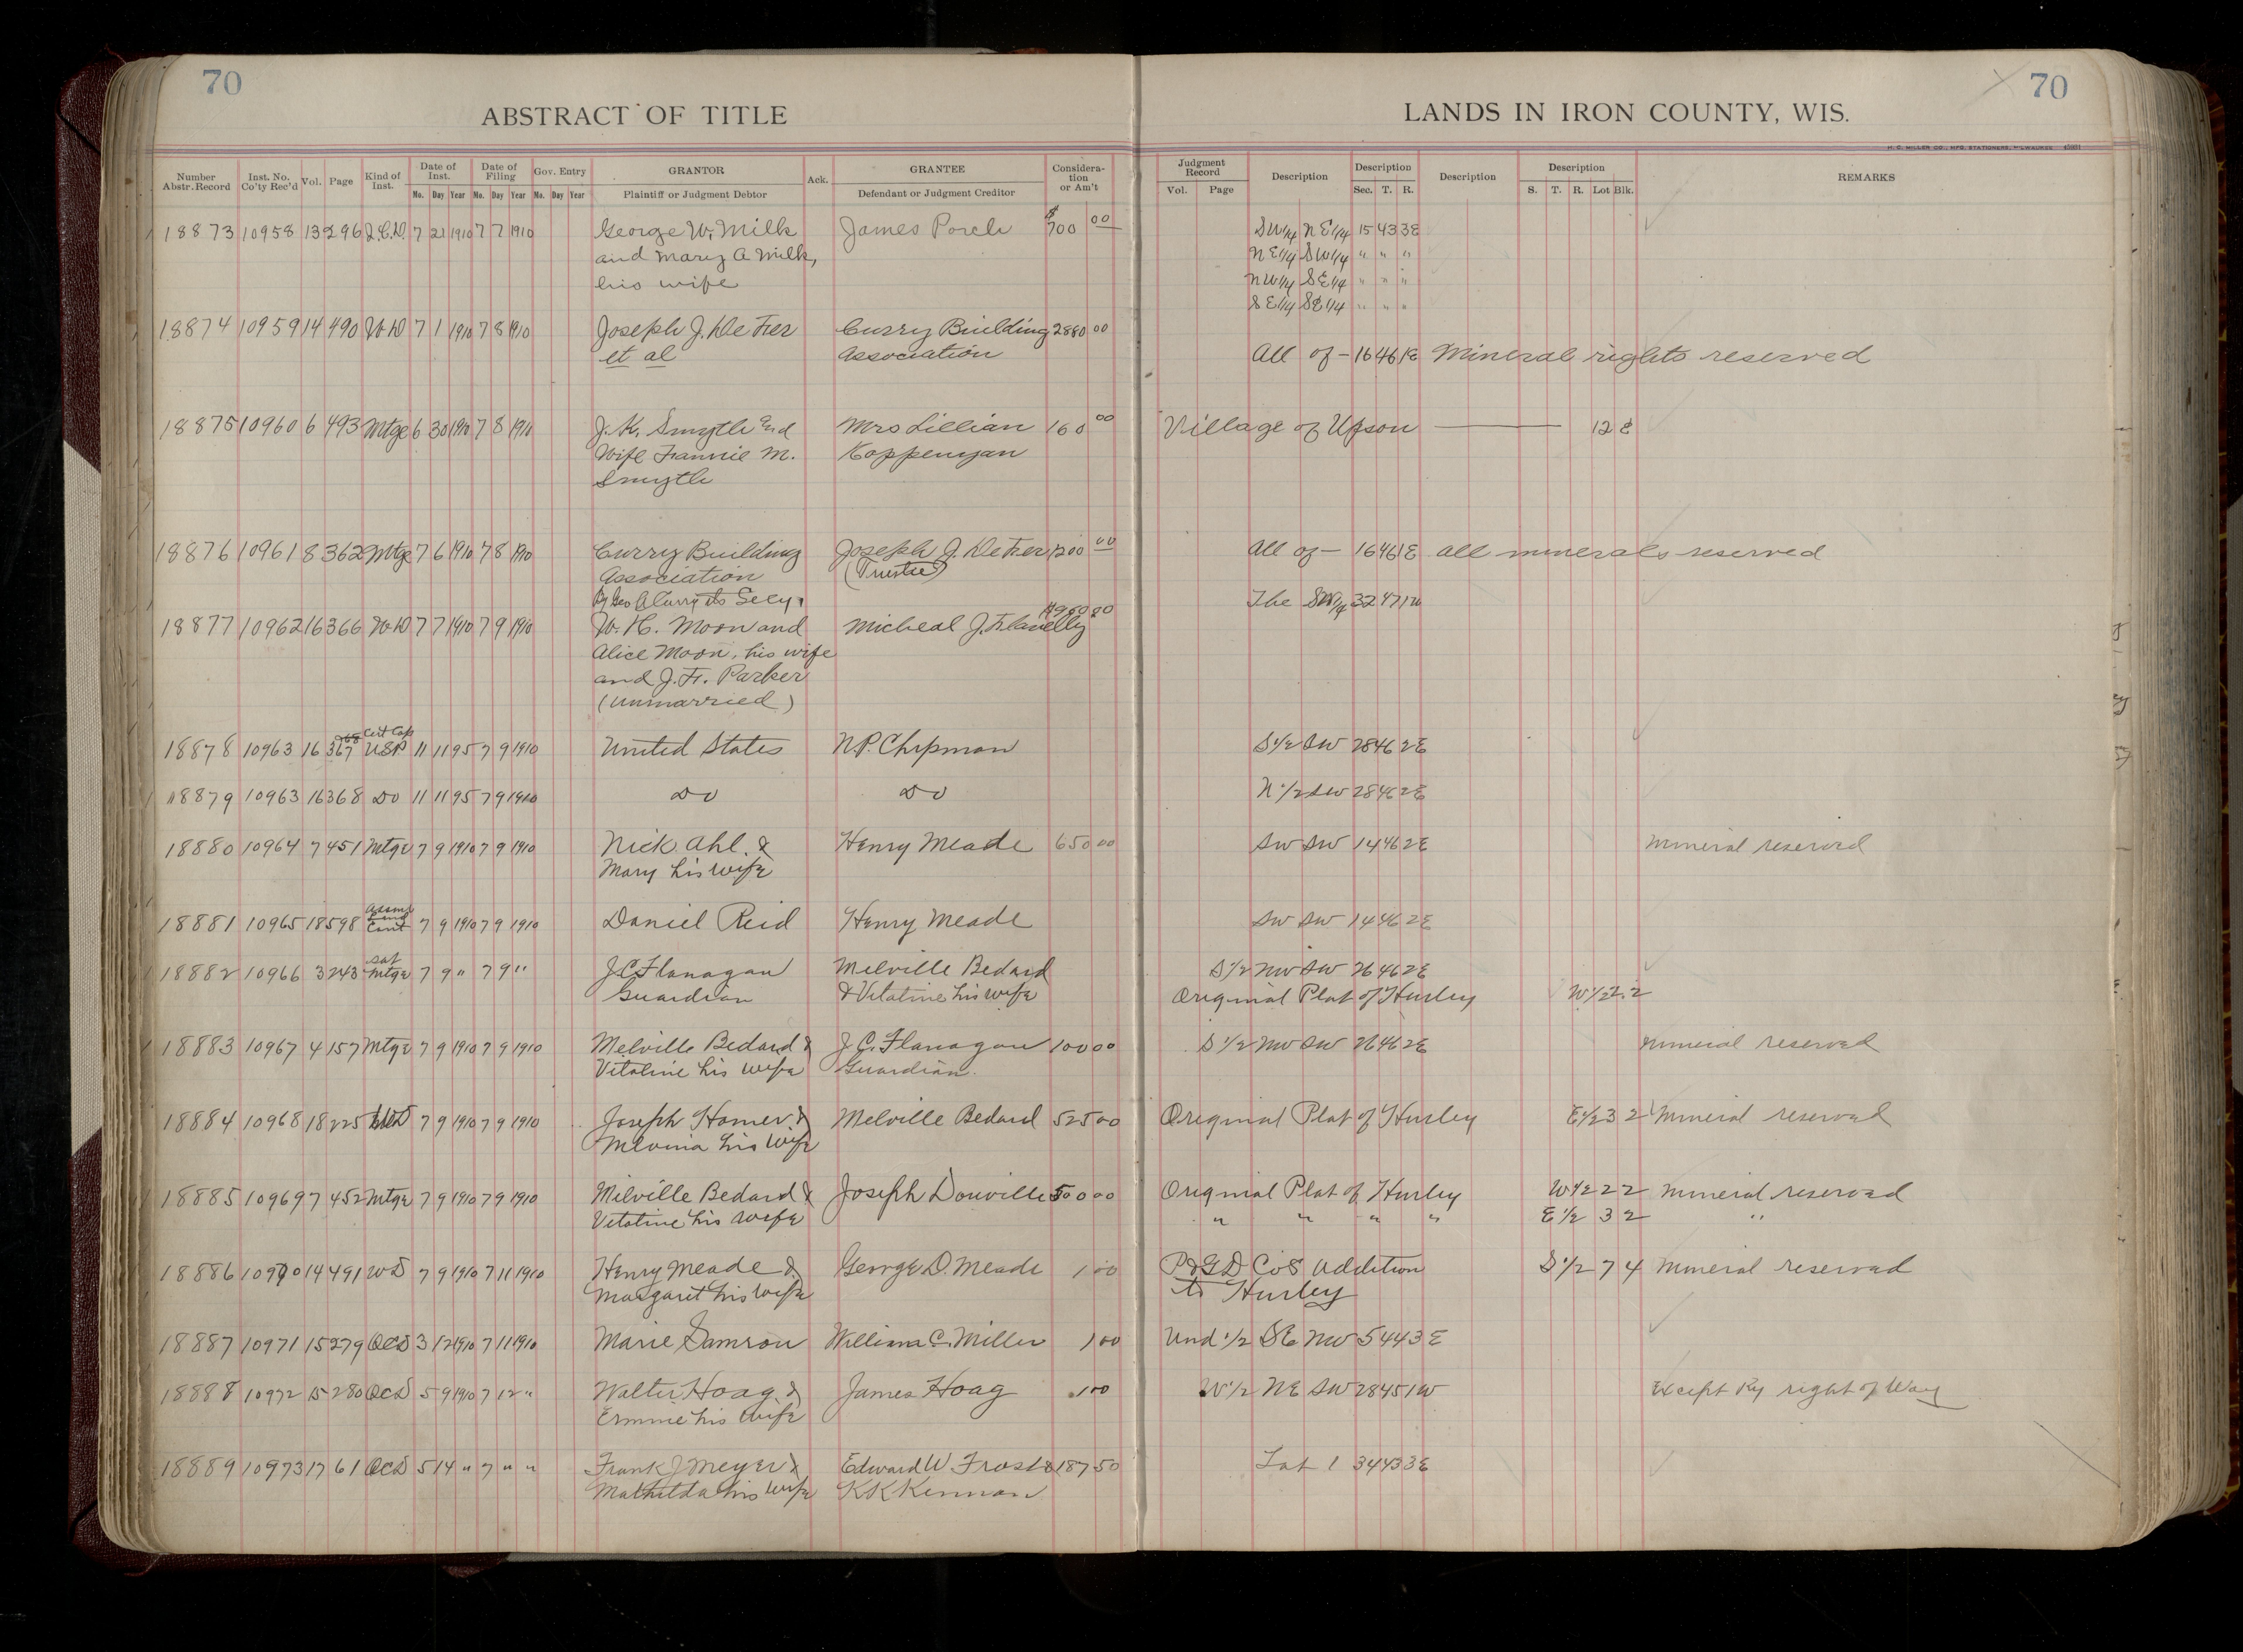 70
70
ABSTRACT OF TITLE
LANDS IN IRON COUNTY, WIS.
H. C. MILLER CO., MFG. STATIONERS, MILWAUKEE
Number Abstr. Record Inst. No. Co'ty Rec'd Vol. Page Kind of Inst. Date of Inst. Mo. Day Year Date of Filing Mo. Day Year Gov. Entry Mo. Day Year GRANTOR Plaintiff or Judgment Debtor Ack. GRANTEE Defendant or Judgment Creditor Considera-tion or Am't
Judgment Record Vol. Page Description Description Sec. T. R. Description Description S. T. R. Lot Blk. REMARKS
18873 10958 13 296 Q.C.D. 7 21 1910 7 7 1910 George W. Milk James Porch $700 00 SW1/4 NE1/4 15 43 3E
and Mary A Milk, NE1/4 SW1/4 " " "
his wife NW1/4 SE1/4 " " "
SE1/4 SE1/4 " " "
18874 10959 14 490 W D 7 1 1910 7 8 1910 Joseph J. DeFer Curry Building 2880 00
et al Association All of - 16 46 1E Mineral rights reserved
18875 10960 6 493 Mtge 6 30 1910 7 8 1910 J. K. Smyth and Mrs Lillian 160 00 Village of Upson 12 8
Wife Fannie M. Koppenyan
Smyth
18876 10961 8 362 Mtge 7 6 1910 7 8 1910 Curry Building Joseph J. DeFer 1200 00 All of - 16 46 1E all minerals reserved
Association (Trustee)
By Geo A Curry its Secy. The SW1/4 32 47 1W
18877 10962 16 366 W D 7 7 1910 7 9 1910 W. H. Moon and Micheal J. Flanelly
Alice Moon, his wife
and J. F. Parker
(unmarried)
18878 10963 16 367 Cert Cop USP 11 11 95 7 9 1910 United States N.P. Chipman S1/2 SW 28 46 2E
18879 10963 16 368 Do 11 11 95 7 9 1910 Do Do N1/2 SW 28 46 2E
18880 10964 7 451 Mtge 7 9 1910 7 9 1910 Nick Ahl & Henry Meade 650 00 SW SW 14 46 2E mineral reserved
Mary his wife
18881 10965 18 598 Assmt Land Cont 7 9 1910 7 9 1910 Daniel Reid Henry Meade SW SW 14 46 2E
18882 10966 3 243 Sat Mtge 7 9 " 7 9 " J.C. Flanagan Melville Bedard S1/2 NW SW 26 46 2E
Guardian & Vitaline his wife Original Plat of Hurley W1/2 2 2
18883 10967 4 157 Mtge 7 9 1910 7 9 1910 Melville Bedard & J. C. Flanagan 100 00 S1/2 NW SW 26 46 2E mineral reserved
Vitaline his wife Guardian.
18884 10968 18 225 WD 7 9 1910 7 9 1910 Joseph Homer & Melville Bedard 525 00 Original Plat of Hurley E1/2 3 2 Mineral reserved
Melvina his wife
18885 10969 7 452 Mtge 7 9 1910 7 9 1910 Milville Bedard & Joseph Douville 500 00 Original Plat of Hurley W1/2 2 2 Mineral reserved
Vitaline his wife " " " " E 1/2 3 2 "
18886 10970 14 491 WD 7 9 1910 7 11 1910 Henry Meade & George D. Meade 1 00 P&GD Co's Addition S1/2 7 4 Mineral reserved
Margaret his wife to Hurley
18887 10971 15 279 QCD 3 12 1910 7 11 1910 Marie Samson William C. Miller 1 00 Und 1/2 SE NW 5 44 3E
18888 10972 15 280 QCD 5 9 1910 7 12 " Walter Hoag & James Hoag 1 00 W1/2 NE SW 28 45 1W Except Ry right of Way
Ermmie his wife
18889 10973 17 61 QCD 5 14 " 7 " " Frank J Meyer & Edward W. Frost & 187 50 Lot 1 34 43 3E
Mathilda his wife K K Kennan